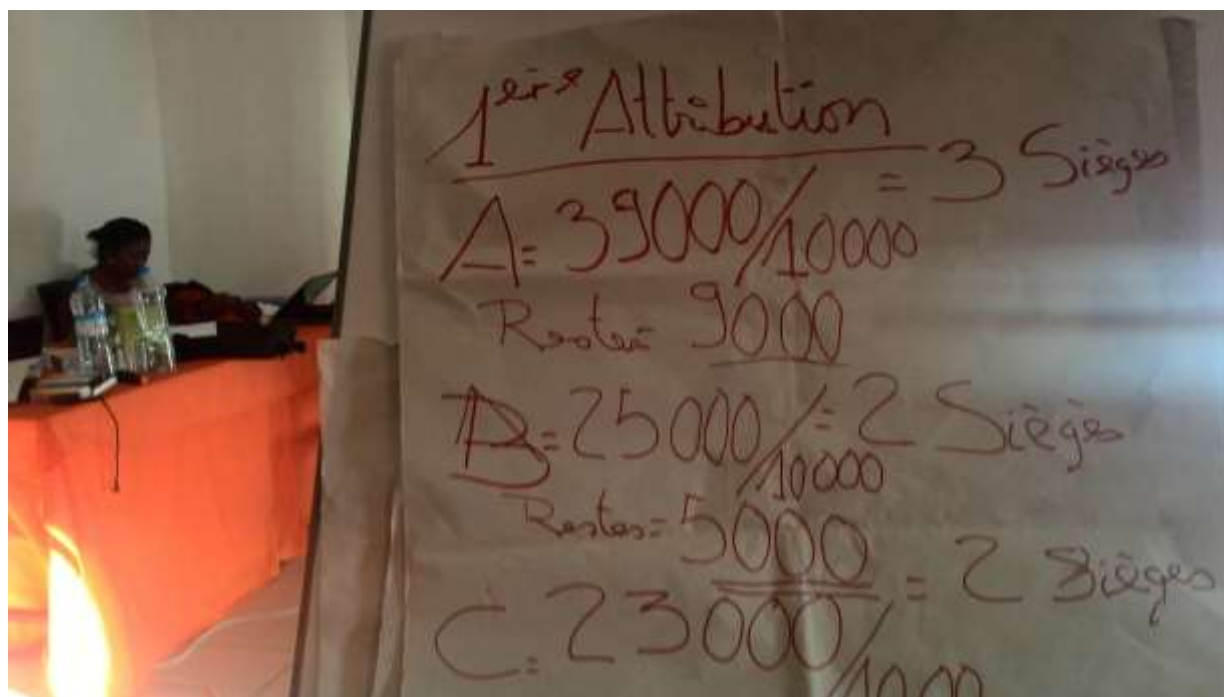 1ère Attribution
A= 39000/10000 = 3 Sièges
Restes= 9000
B= 25000/10000 = 2 Sièges
Restes= 5000
C= 23000/1000 = 2 Sièges